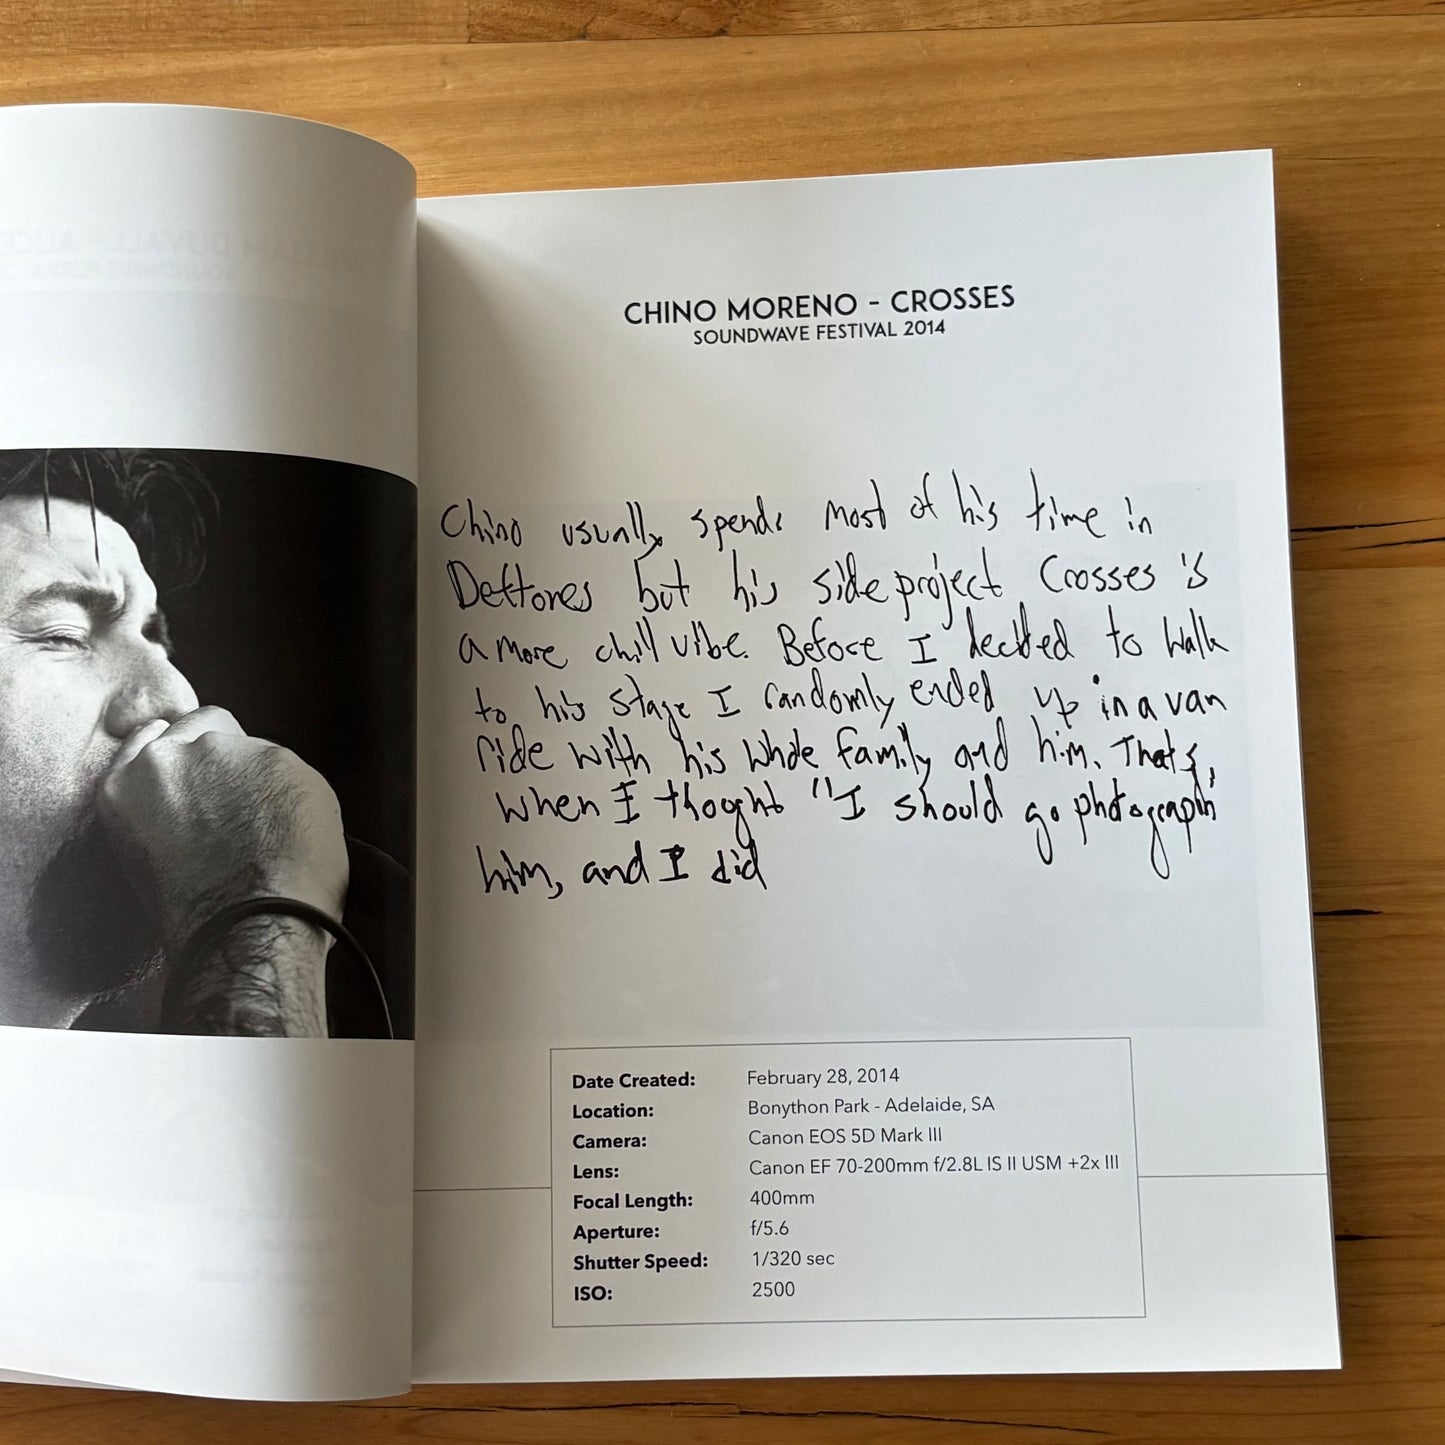 CHINO MORENO - CROSSES
SOUNDWAVE FESTIVAL 2014
Chino usually spends most of his time in
Deftones but his side project Crosses is
a more chill vibe. Before I decided to walk
to his stage I randomly ended up in a van
ride with his whole family and him. Thats,
when I thoght "I should go photograph
him, and I did
Date Created: February 28, 2014
Location: Bonython Park - Adelaide, SA
Camera: Canon EOS 5D Mark III
Lens: Canon EF 70-200mm f/2.8L IS II USM +2x III
Focal Length: 400mm
Aperture: f/5.6
Shutter Speed: 1/320 sec
ISO: 2500